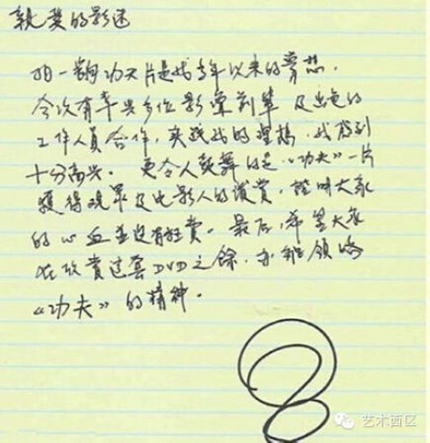 親愛的影迷
拍一套功夫片是我多年以來的夢想.
今次有幸與多位影壇前輩 及出色的
工作人員合作, 實踐我的理想, 我感到
十分高興. 更令人鼓舞的是 "功夫" 一片
獲得觀眾及电影人的讚賞, 證明大家
的心血並沒有枉費. 最后, 希望大家
在欣賞这套DVD之餘, 亦能領略
《功夫》的精神.
艺术西区